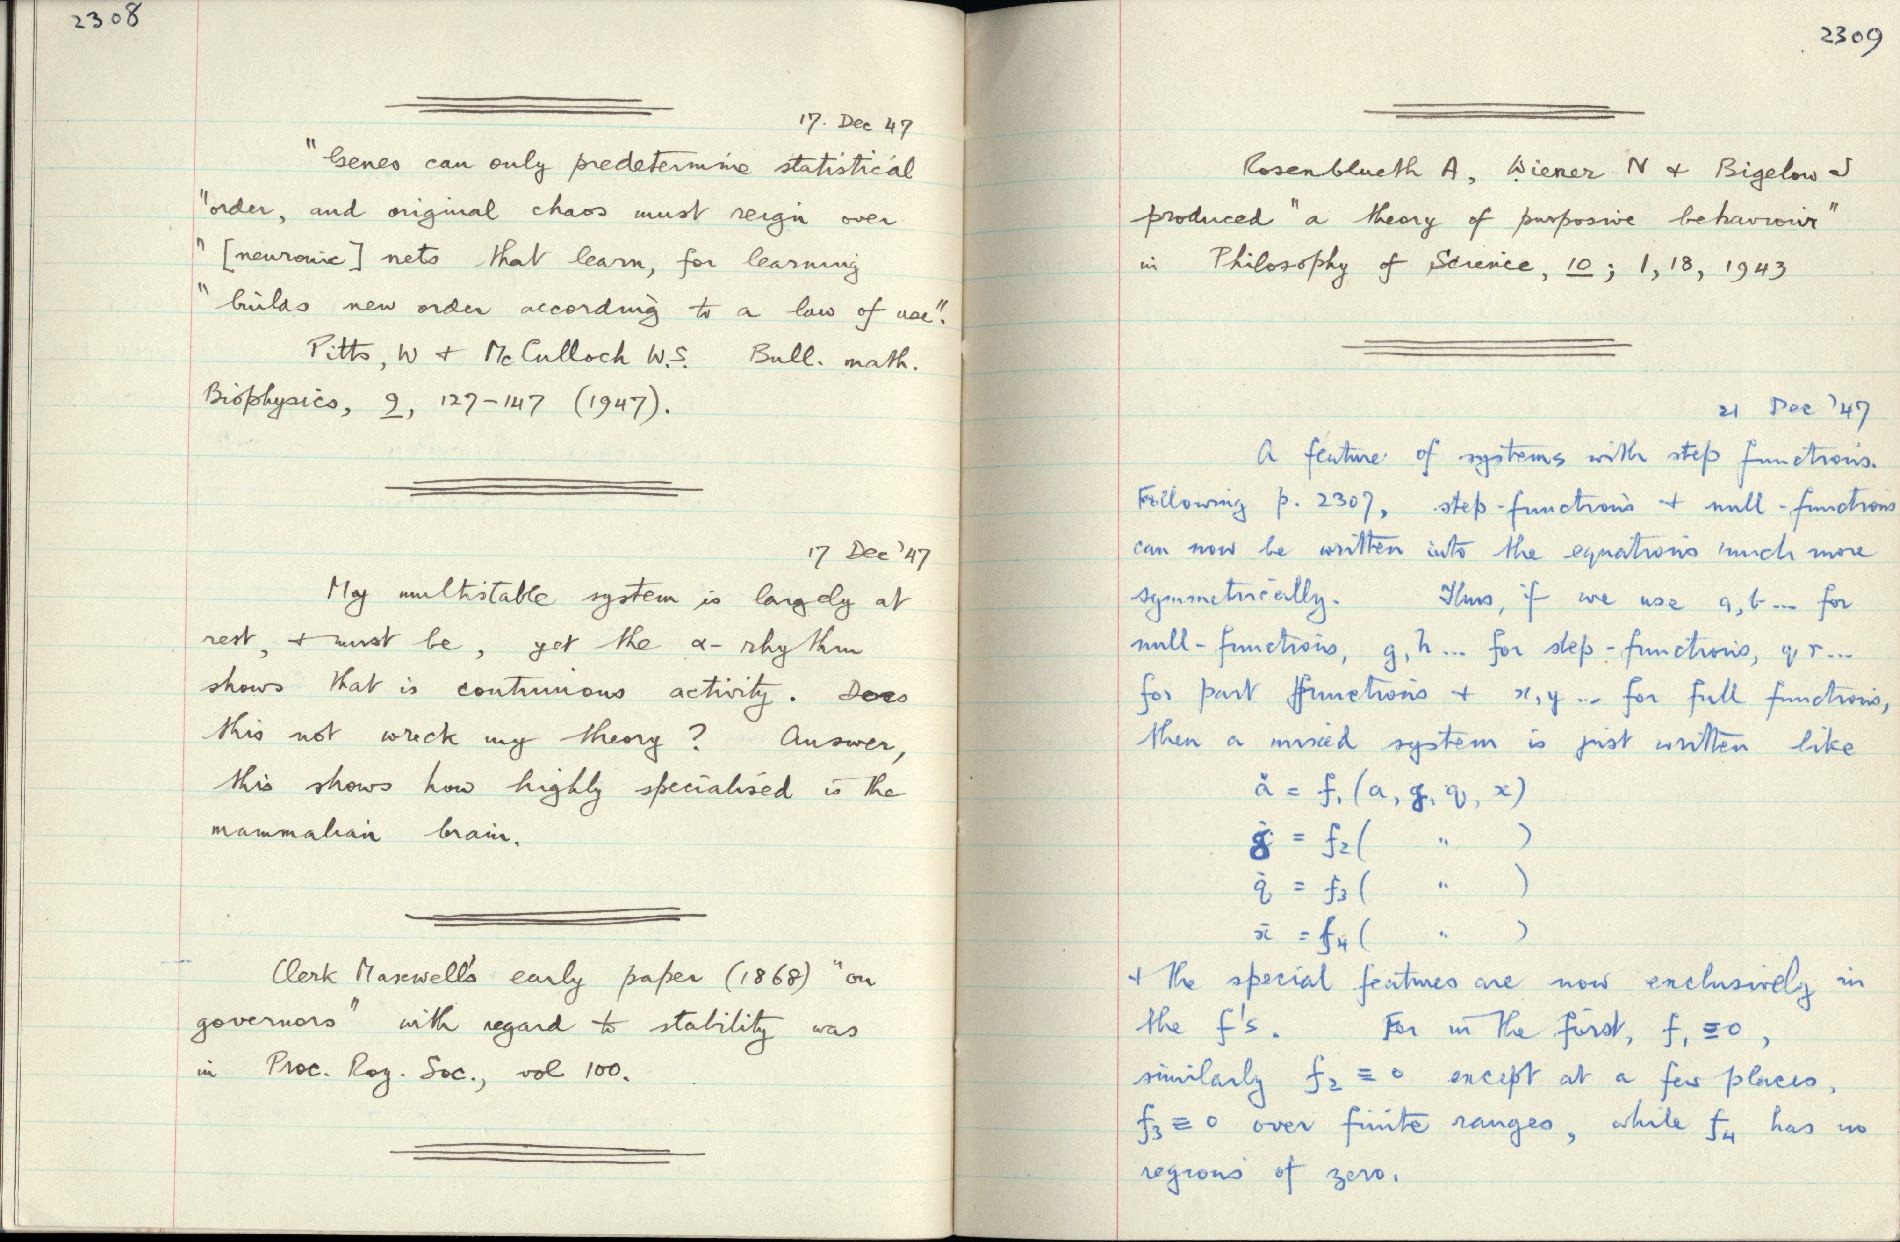 2308
17. Dec 47
"Genes can only predetermine statistical
"order, and original chaos must reign over
"[neuronic] nets that learn, for learning
"builds new order according to a law of use".
Pitts, W + McCulloch W.S. Bull. math.
Biophysics, 9, 127-147 (1947).
17 Dec '47
My multistable system is largely at
rest, + must be, yet the α-rhythm
shows that is continuous activity. Does
this not wreck my theory? Answer,
this shows how highly specialised is the
mammalian brain.
Clerk Maxwell's early paper (1868) "on
governors" with regard to stability was
in Proc. Roy. Soc., vol 100.
2309
Rosenblueth A, Wiener N + Bigelow J
produced "a theory of purposive behaviour"
in Philosophy of Science, 10; 1, 18, 1943
21 Dec '47
A feature of systems with step functions.
Following p. 2307, step-functions + null-functions
can now be written into the equations much more
symmetrically. Thus, if we use a, b ... for
null-functions, g, h ... for step-functions, q r ...
for part functions + x, y ... for full functions,
then a mixed system is just written like
ȧ = f₁(a, g, q, x)
ġ = f₂( " )
q̇ = f₃( " )
ẋ = f₄( " )
+ the special features are now exclusively in
the f's. For in the first, f₁ ≡ 0,
similarly f₂ ≡ 0 except at a few places,
f₃ ≡ 0 over finite ranges, while f₄ has no
regions of zero.